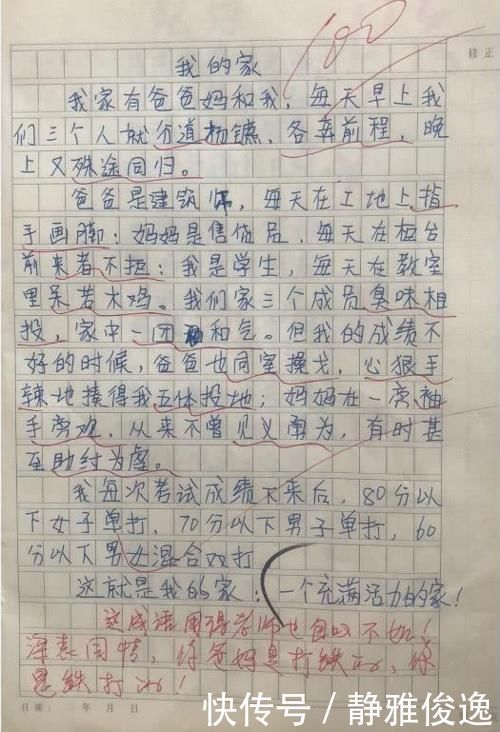 100
修正
我的家
我家有爸爸妈和我，每天早上我
们三个人就分道杨镳，各奔前程，晚
上又殊途同归。
爸爸是建筑师，每天在工地上指
手画脚；妈妈是售货员，每天在柜台
前来者不拒；我是学生，每天在教室
里呆若木鸡。我们家三个成员臭味相
投，家中一团和气。但我的成绩不
好的时候，爸爸也同室操戈，心狠手
辣地揍得我五体投地；妈妈在一旁袖
手旁观，从来不曾见义勇为，有时甚
至助纣为虐。
我每次考试成绩下来后，80分以
下女子单打，70分以下男子单打，60
分以下男女混合双打
这就是我的家：一个充满活力的家！
这成语用得老师也自叹不如！
深表同情，你爸妈是打铁的，你
是铁打的！
日期： 年 月 日
快传号/静雅俊逸